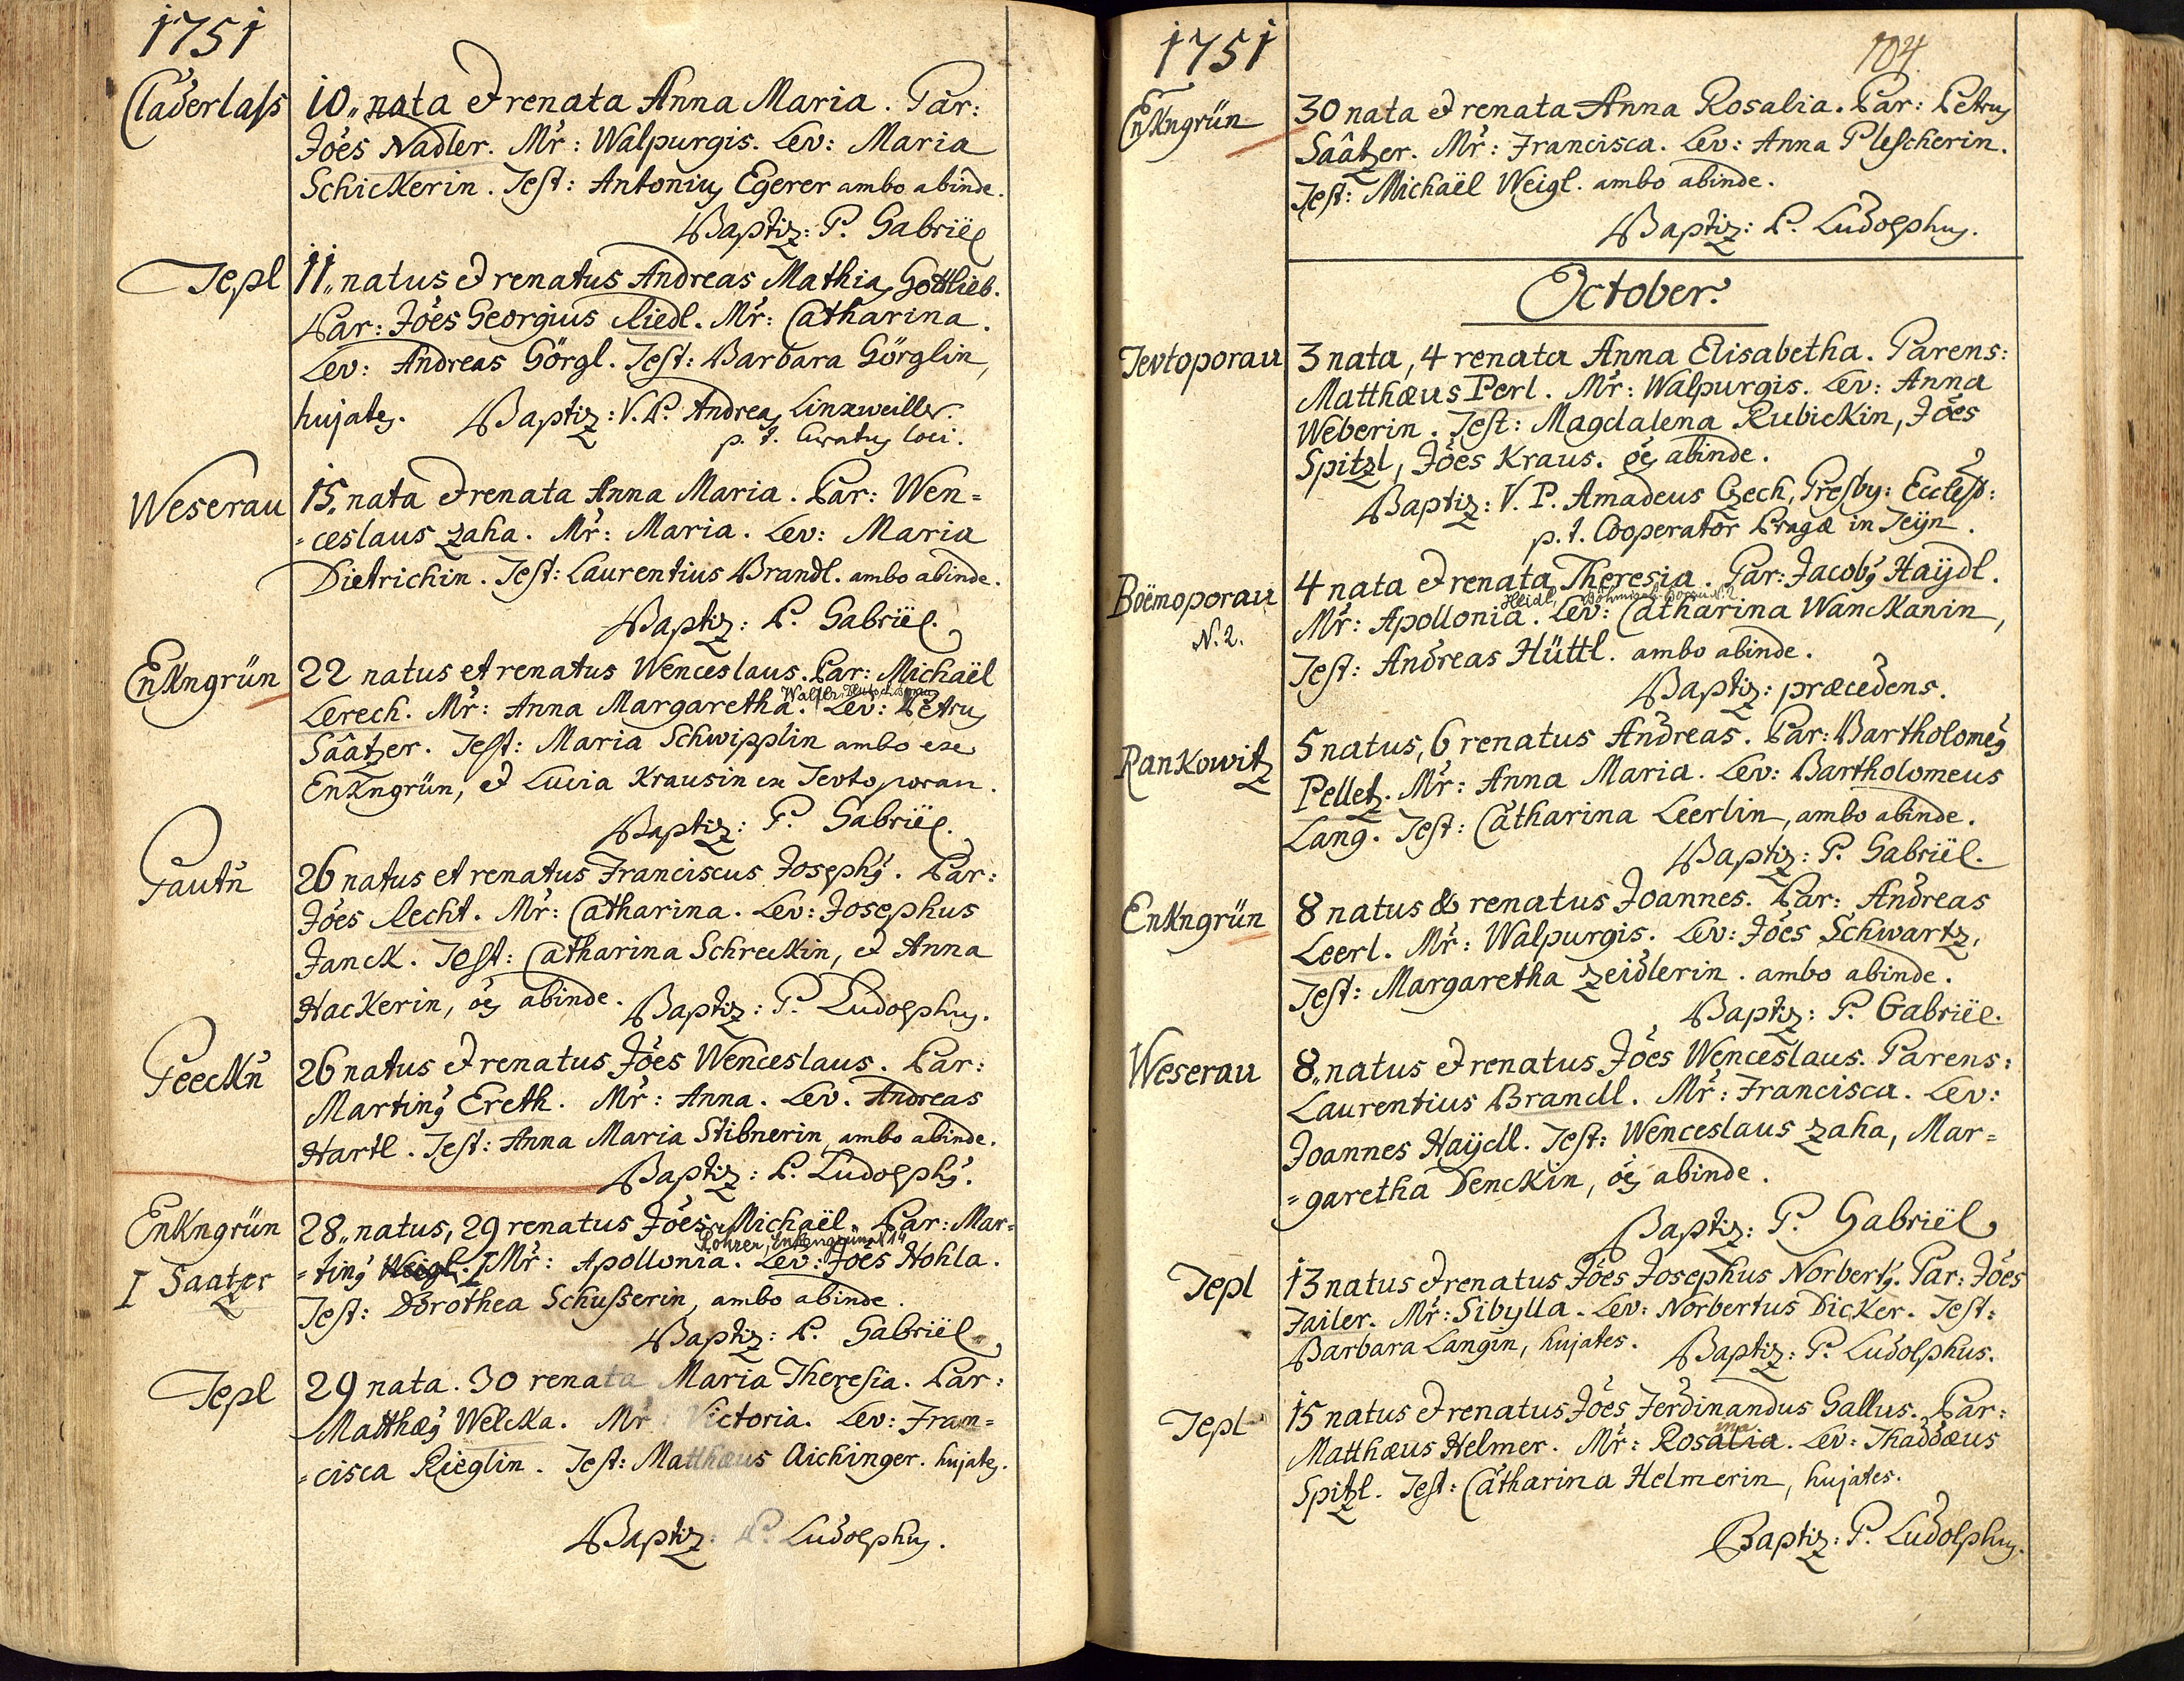 1751
Claderlass
10,, nata et renata Anna Maria. Par:
Joes Nadler. Mr: Walpurgis. Lev: Maria
Schickerin. Test: Antonius Egerer ambo abinde.
Baptiz: P. Gabriël
Tepl
11,, natus et renatus Andreas Mathias Gottlieb.
Par: Joes Georgius Riedl. Mr: Catharina.
Lev: Andreas Görgl. Test: Barbara Görglin,
hujates. Baptiz: V. P. Andreas Linxweiller.
p. t. Curatus loci.
Weserau
15,, nata et renata Anna Maria. Par: Wen=
=ceslaus Zaha. Mr: Maria. Lev: Maria
Dietrichin. Test: Laurentius Brandl. ambo abinde.
Baptiz: P. Gabriël.
Enkngrün
22 natus et renatus Wenceslaus. Par: Michaël
Lerech. Mr: Anna Margaretha. Lev: Petrus
Säätzer. Test: Maria Schwipplin ambo exe
Enkngrün, et Lucia Krausin ex Tevtoporau.
Baptiz: P. Gabriël.
Pautn̄
26 natus et renatus Franciscus Josephus. Par:
Joes Recht. Mr: Catharina. Lev: Josephus
Janck. Test: Catharina Schreckin, et Anna
Hackerin, oēs abinde. Baptiz: P. Ludolphus.
Peeckn̄
26 natus et renatus Joes Wenceslaus. Par:
Martinus Ereth. Mr: Anna. Lev. Andreas
Hartl. Test: Anna Maria Stibnerin, ambo abinde.
Baptiz: P. Ludolphus.
Enkngrün
28,, natus, 29 renatus Joes Michaël. Par: Mar=
Rohrer, Enkengrün N 14
I Saatzer
=tinus Weigl. I Mr: Apollonia. Lev: Joes Hohla.
Test: Dorothea Schusserin, ambo abinde.
Baptiz: P. Gabriël
Tepl
29 nata. 30 renata Maria Theresia. Par:
Matthæus Welcka. Mr: Victoria. Lev: Fran=
=cisca Rieglin. Test: Matthæus Aichinger. hujates.
Baptiz: P. Ludolphus.
1751
104
Enkngrün
30 nata et renata Anna Rosalia. Par: Petrus
Säätzer. Mr: Francisca. Lev: Anna Plescherin.
Test: Michaël Weigl. ambo abinde.
Baptiz: P. Ludolphus.
October.
Tevtoporau
3 nata, 4 renata Anna Elisabetha. Parens:
Matthæus Perl. Mr: Walpurgis. Lev: Anna
Weberin. Test: Magdalena Rubickin, Joes
Spitzl, Joes Kraus. oēs abinde.
Baptiz: V. P. Amadeus Czech, Presby: Eccles:
p. t. Cooperator Pragæ in Teÿn.
Boëmoporau
N. 2.
4 nata et renata Theresia. Par: Jacobus Haÿdl.
Heidl, Böhmisch-Borau N. 2
Mr: Apollonia. Lev: Catharina Wanckanin,
Test: Andreas Hüttl. ambo abinde.
Baptiz: præcedens.
Rankowitz
5 natus, 6 renatus Andreas. Par: Bartholomeus
Pelletz. Mr: Anna Maria. Lev: Bartholomeus
Lang. Test: Catharina Leerlin, ambo abinde.
Baptiz: P. Gabriël.
Enkngrün
8 natus & renatus Joannes. Par: Andreas
Leerl. Mr: Walpurgis. Lev: Joes Schwartz,
Test: Margaretha Zeidlerin. ambo abinde.
Baptiz: P. Gabriël.
Weserau
8,, natus et renatus Joes Wenceslaus. Parens:
Laurentius Brandl. Mr: Francisca. Lev:
Joannes Haÿdl. Test: Wenceslaus Zaha, Mar=
=garetha Denckin, oēs abinde.
Baptiz: P. Gabriël
Tepl
13 natus et renatus Joes Josephus Norbertus. Par: Joes
Failer. Mr: Sibylla. Lev: Norbertus Dicker. Test:
Barbara Langin, hujates. Baptiz: P. Ludolphus.
Tepl
15 natus et renatus Joes Ferdinandus Gallus. Par:
ina
Matthæus Helmer. Mr: Rosalia. Lev: Thaddæus
Spitzl. Test: Catharina Helmerin, hujates.
Baptiz: P. Ludolphus.